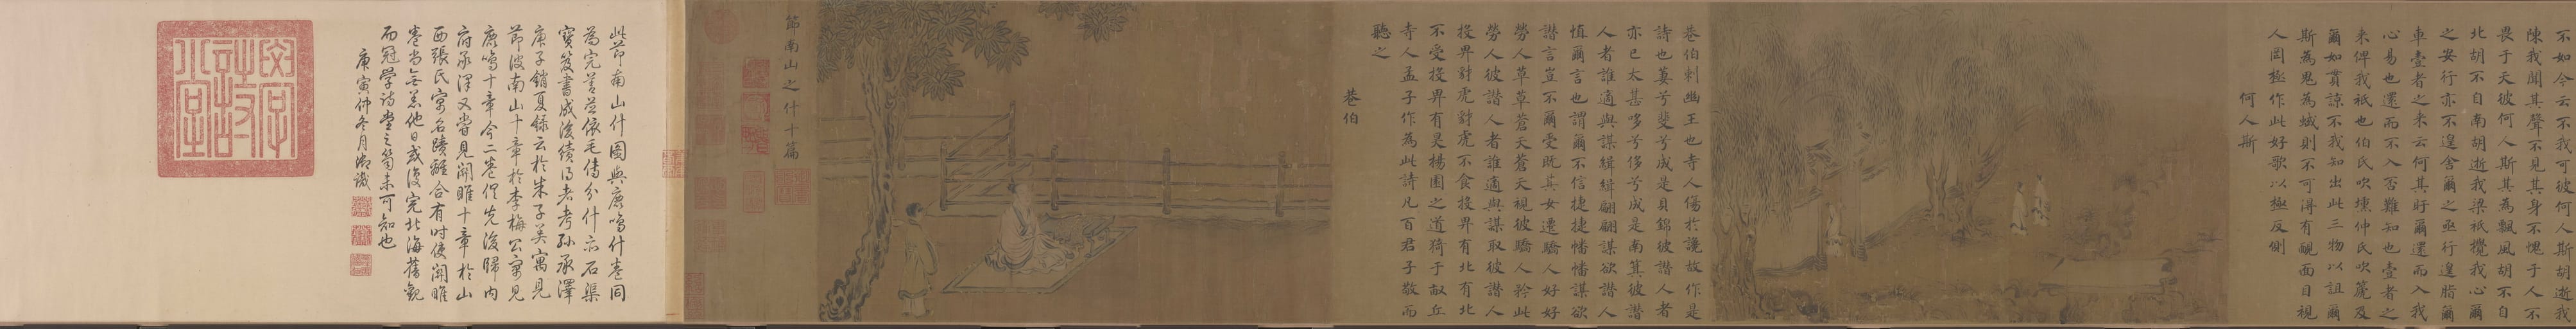 不如今云不我可彼何人斯胡逝我
陳我聞其聲不見其身不愧于人不
畏于天彼何人斯其為飄風胡不自
北胡不自南胡逝我梁祇攪我心爾
之安行亦不遑舍爾之亟行遑脂爾
車壹者之来云何其盱爾還而入我
心易也還而不入否難知也壹者之
来俾我祇也伯氏吹壎仲氏吹篪及
爾如貫諒不我知出此三物以詛爾
斯為鬼為蜮則不可得有靦面目視
人罔極作此好歌以極反側
何人斯
巷伯刺幽王也寺人傷於讒故作是
詩也萋兮斐兮成是貝錦彼譖人者
亦已太甚哆兮侈兮成是南箕彼譖
人者誰適與謀緝緝翩翩謀欲譖人
慎爾言也謂爾不信捷捷幡幡謀欲
譖言豈不爾受既其女遷驕人好好
勞人草草蒼天蒼天視彼驕人矜此
勞人彼譖人者誰適與謀取彼譖人
投畀豺虎豺虎不食投畀有北有北
不受投畀有昊楊園之道猗于畝丘
寺人孟子作為此詩凡百君子敬而
聽之
巷伯
節南山之什十篇
此節南山什圖與鹿鳴什卷同
為完善並依毛傳分什亦石渠
寶笈書成後續得者考孫承澤
庚子銷夏錄云於朱子美寓見
節彼南山十章於李梅公寓見
鹿鳴十章今二卷俱先後歸內
府承澤又嘗見關雎十章於山
西張氏寓名蹟離合有時使關雎
卷尚無恙他日或復完北海舊觀
而冠學詩堂之笥未可知也
庚寅仲冬月御識